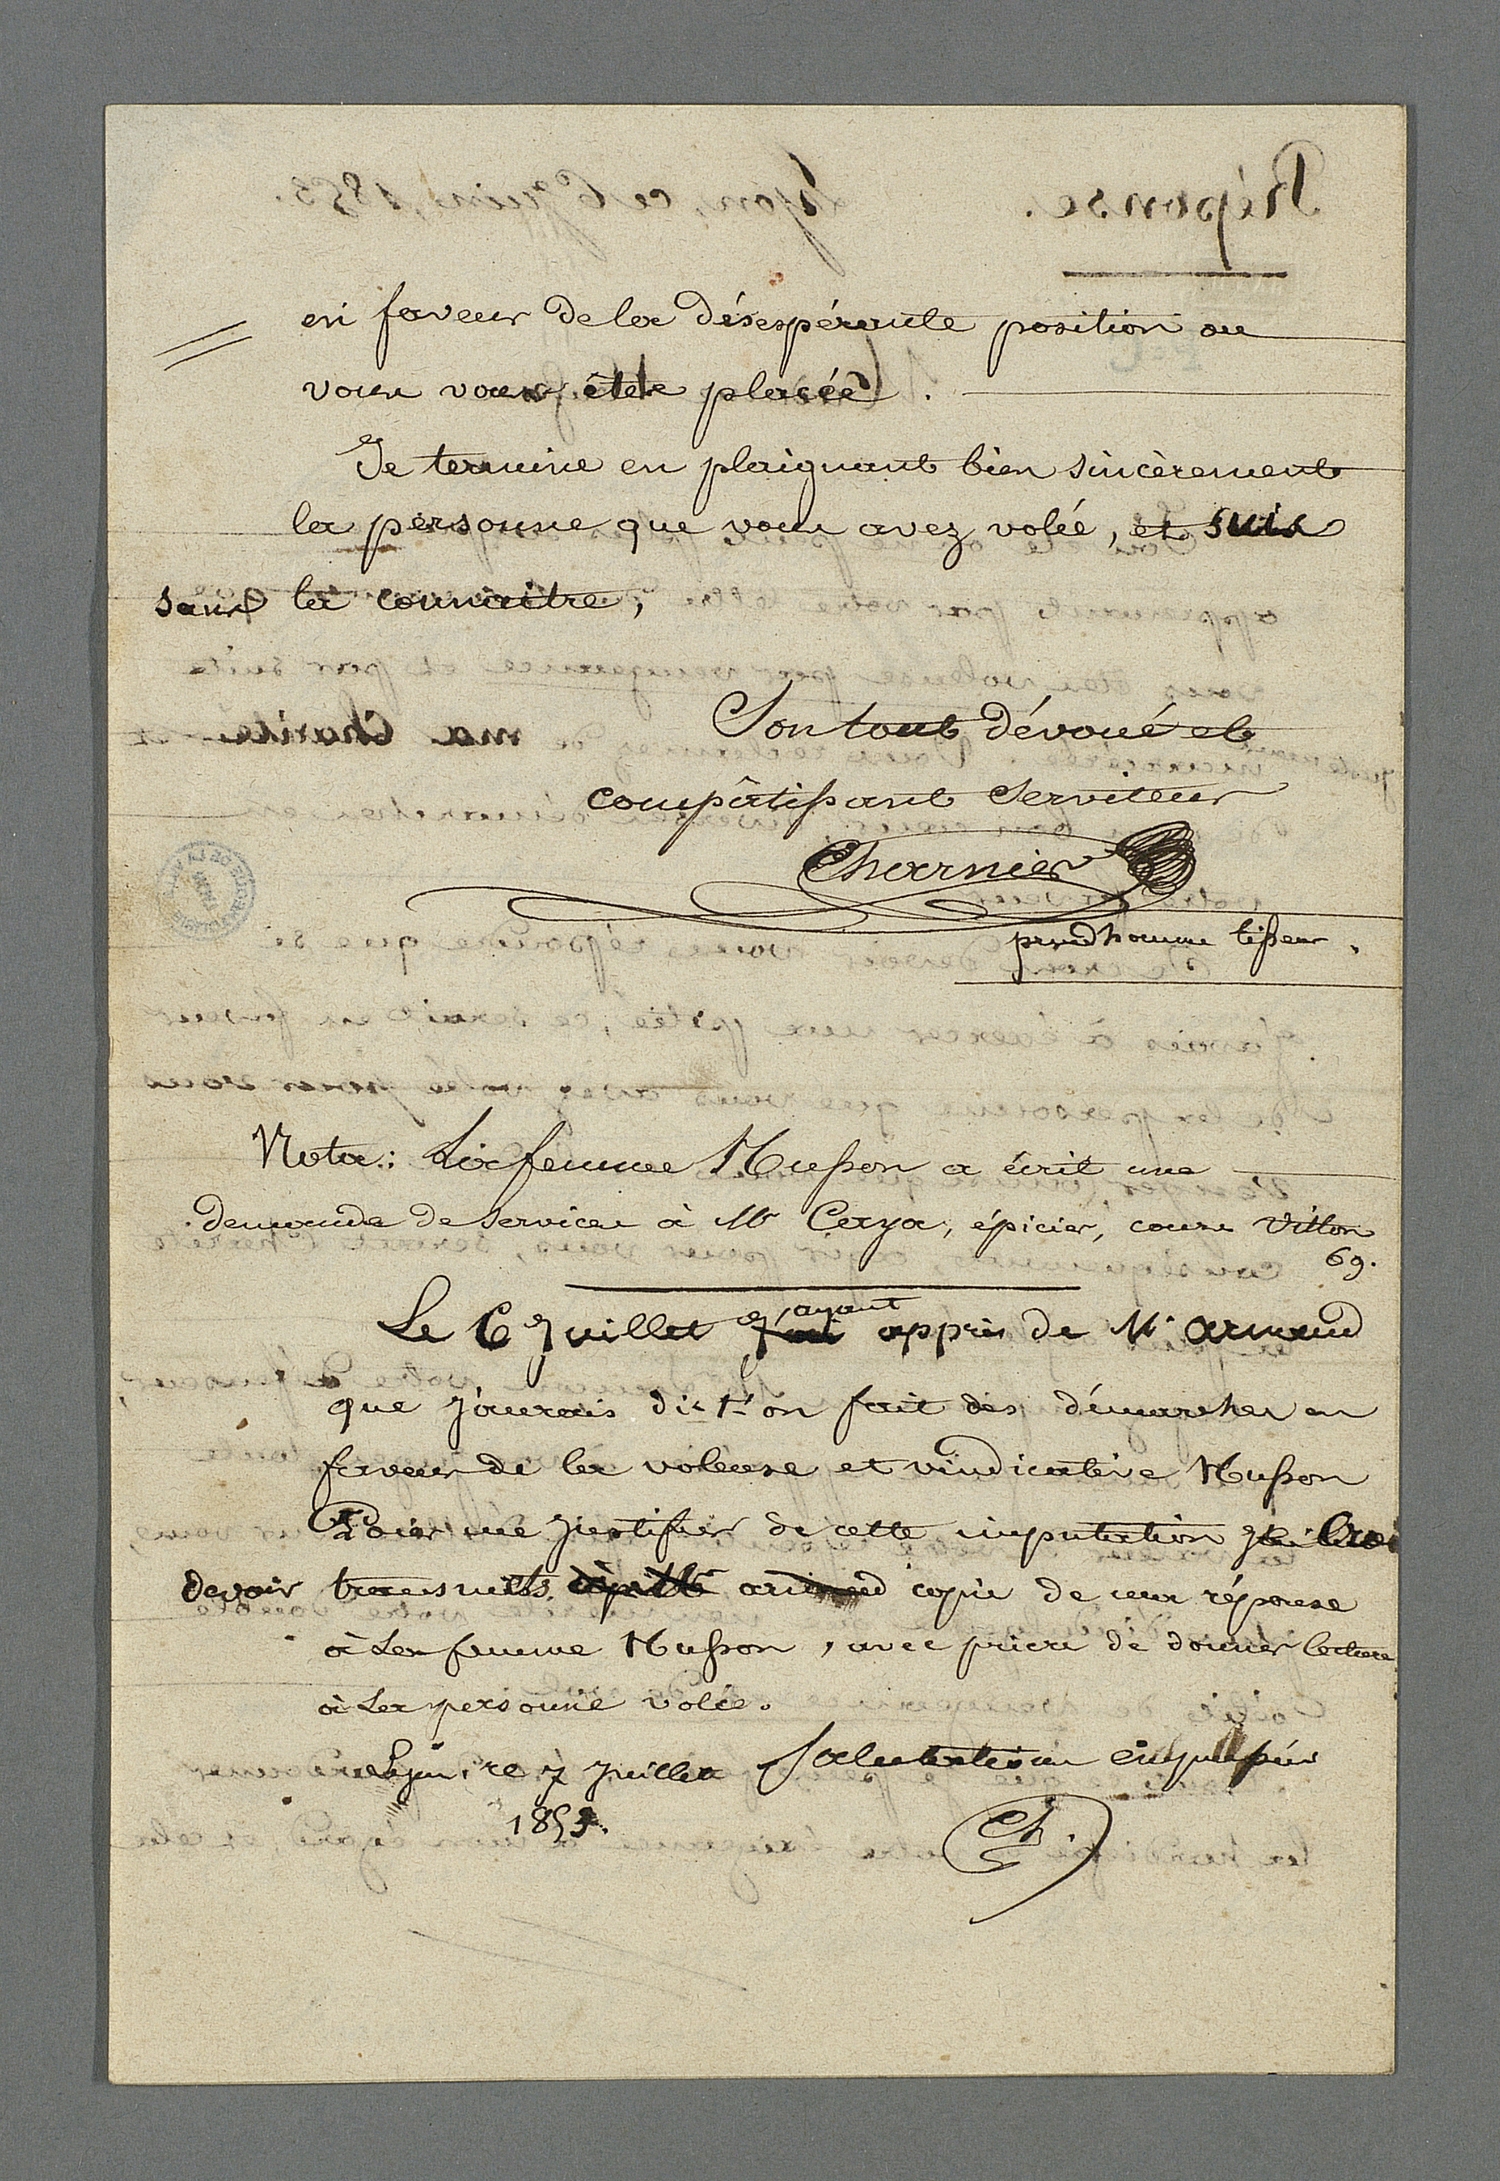 en faveur de la désespérante position ou
vous vous êtes placée.
Je termine en plaignant bien sincèrement
la personne que vous avez volée, et suis
sans la connaitre,
Son tout dévoué et
compâtissant serviteur
Charnier
prudhomme tisseur.
Nota: La femme Musson a écrit une
demande de services à Mr Caya, épicier, cours Vitton
69.
Le 6 Juillet J'ayant appris de Mr Arnaud
que j'aurais dit-on fait des démarches en
faveur de la voleuse et vindicative Musson
Pour me justifier de cette imputation je crois
devoir transmettre copie de ma réponse
à La femme Musson, avec prière de donner lecture
à La personne volée.
Lyon, ce 7 Juillet Salutation
1853.
Ch.